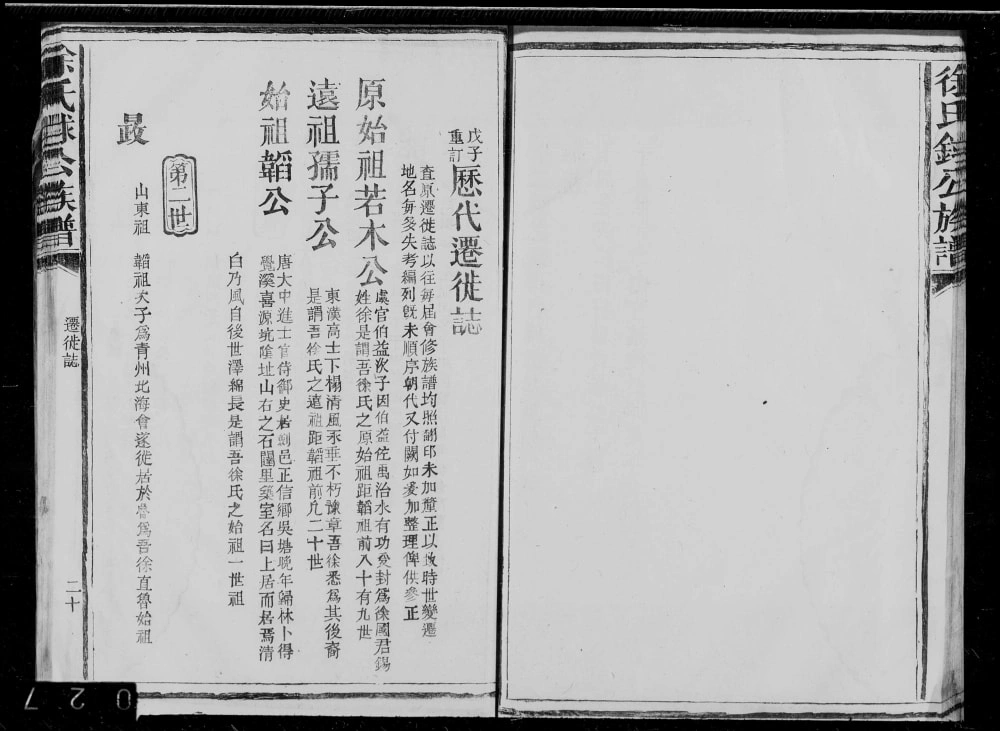 徐氏錸公族譜
戊子
重訂
歷代遷徙誌
查原遷徙誌以往每屆會修族譜均照謝印未加釐正以致時世變遷
地名每多失考編列旣未順序朝代又付闕如爰加整理俾供參正
原始祖若木公
虞官伯益次子因伯益佐禹治水有功爰封爲徐國君錫
姓徐是謂吾徐氏之原始祖距韜祖前八十有九世
遠祖孺子公
東漢高士下榻清風永垂不朽豫章吾徐悉爲其後裔
是謂吾徐氏之遠祖距韜祖前凡二十世
始祖韜公
唐大中進士官侍御史居剡邑正信鄉吳塘晚年歸林卜得
覺溪喜源坑陰址山右之石闥里築室名曰上居而居焉清
白乃風自後世澤綿長是謂吾徐氏之始祖一世祖
第二世
晸
山東祖
韜祖次子爲青州北海會遂徙居於魯爲吾徐直魯始祖
徐氏錸公族譜
遷徙誌
二十
027